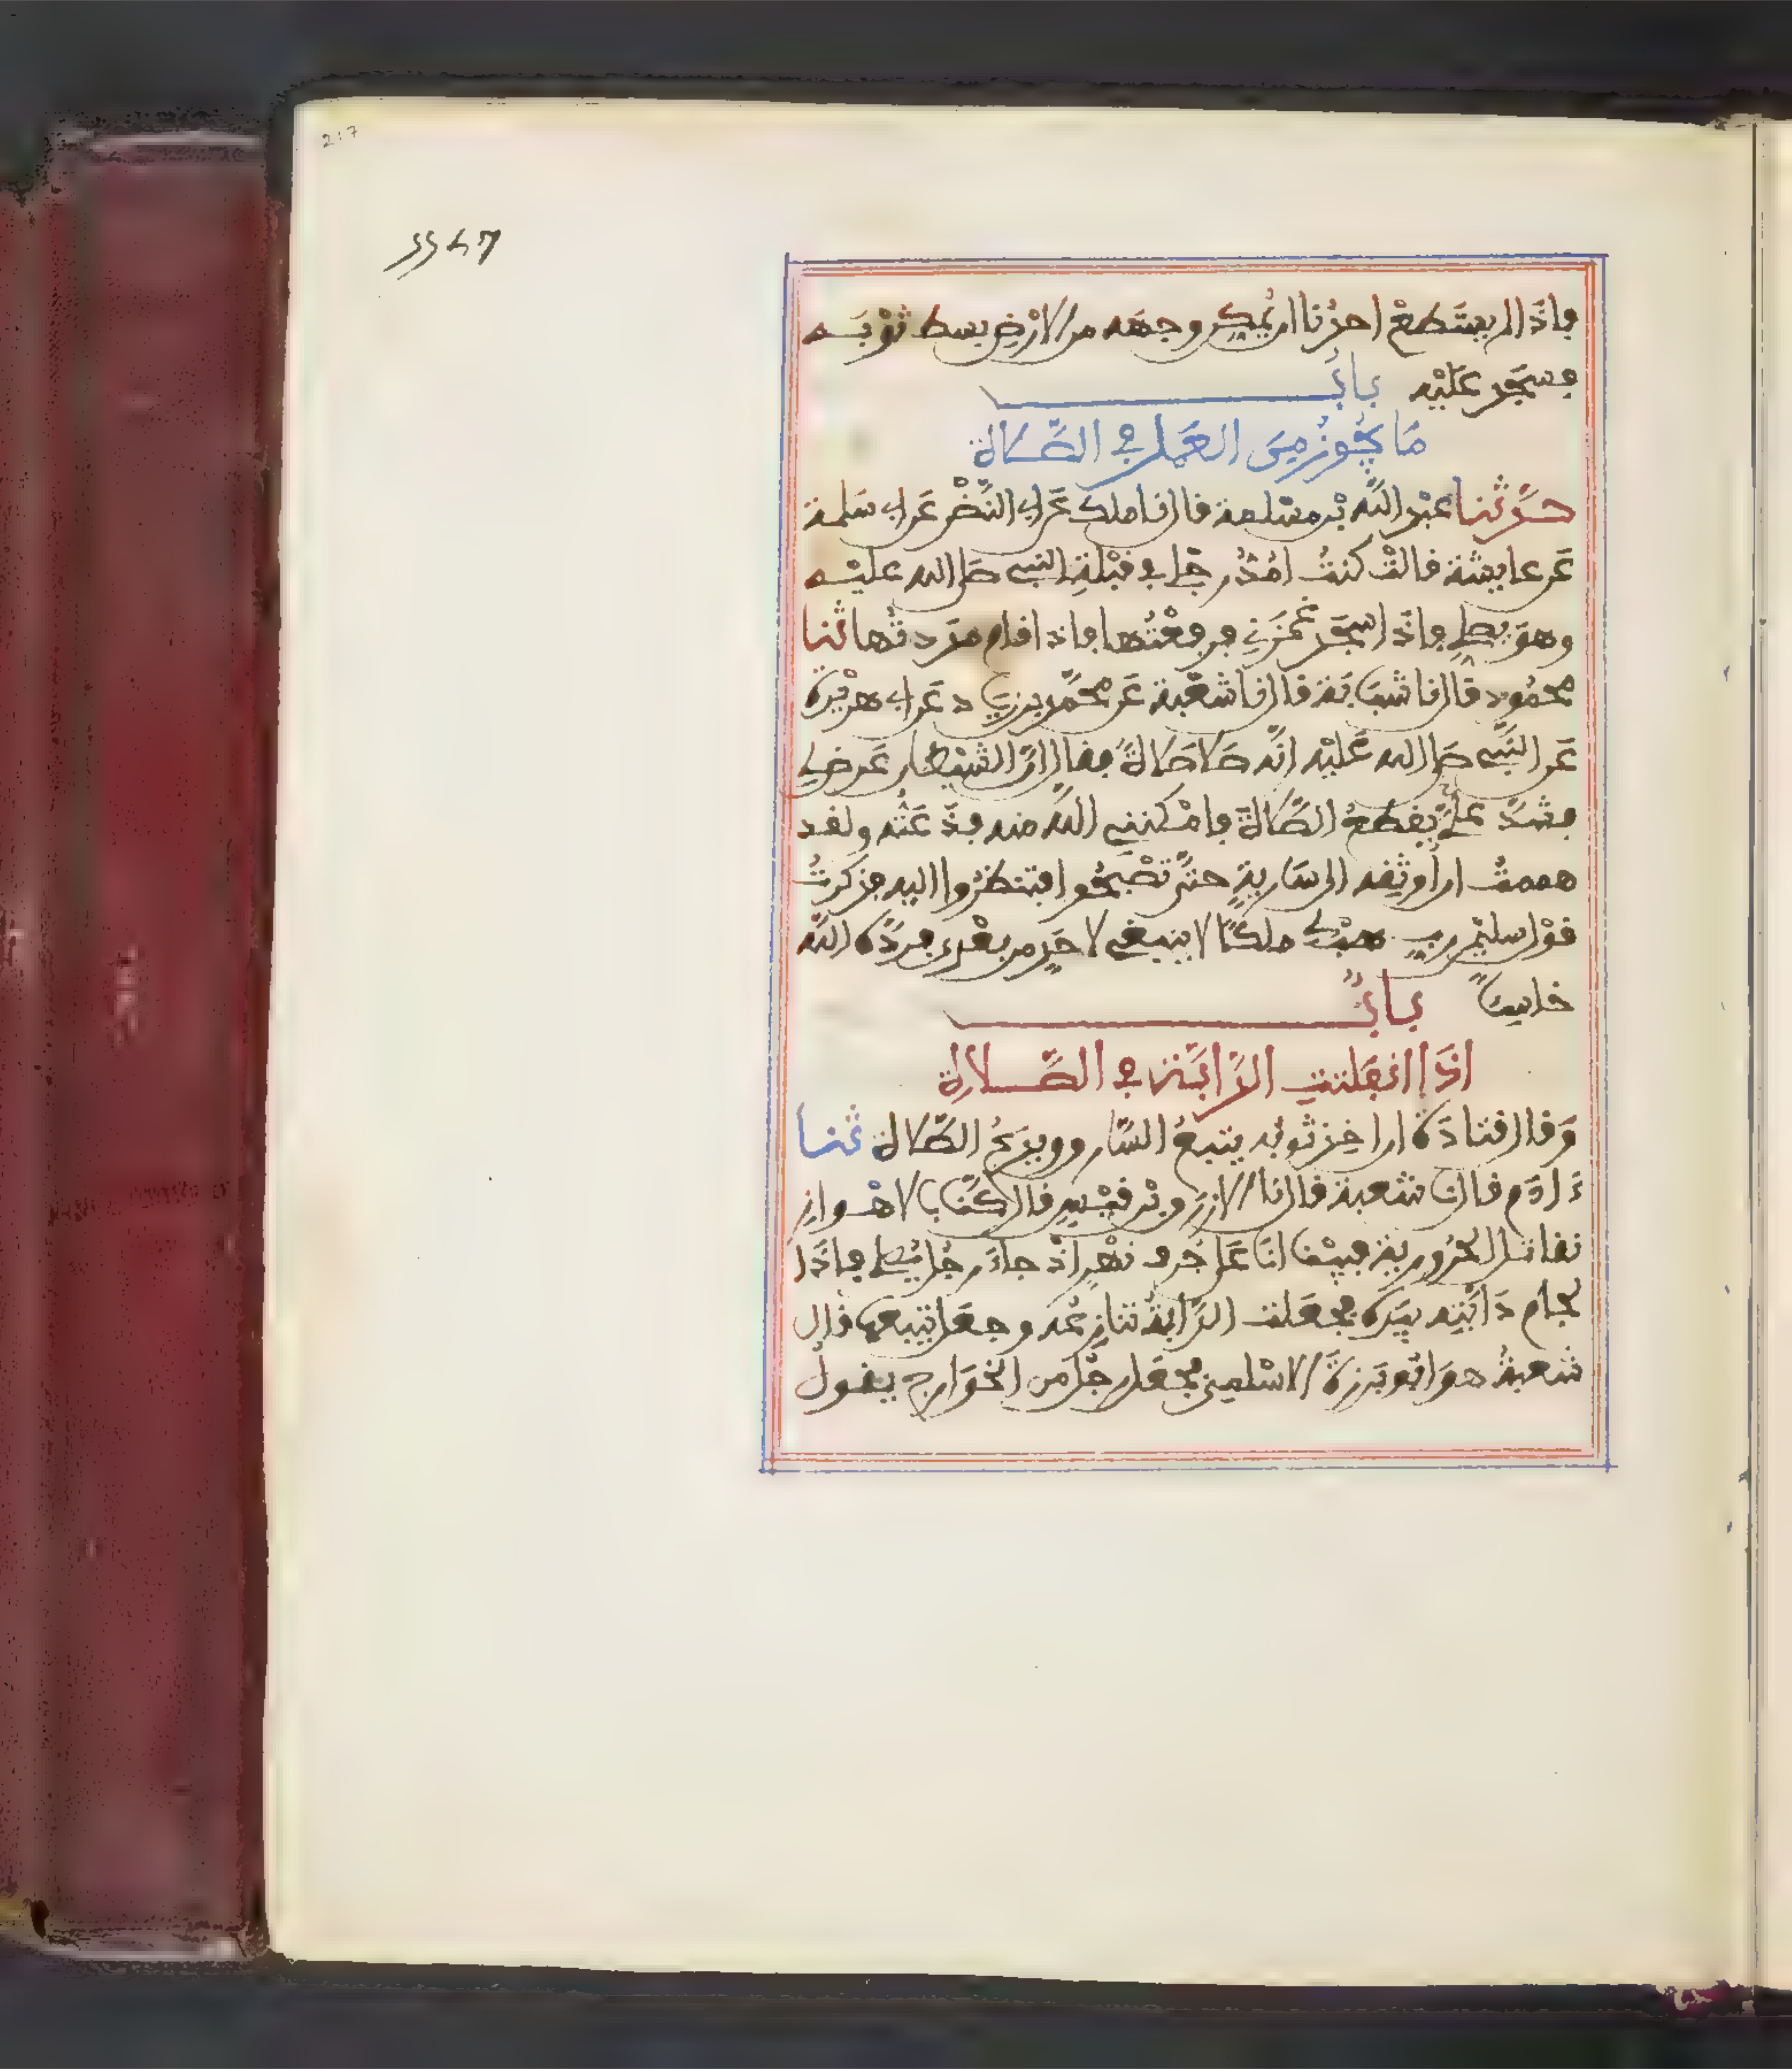 فإذا لم يستطع أحدنا أن يمكن وجهه من الأرض بسط ثوبه
فسجد عليه باب
ما يجوز من العمل في الصلاة
حدثنا عبد الله بن مسلمة قال نا ملك عن أبي النضر عن أبي سلمة
عن عايشة قالت كنت أمد رجلي في قبلة النبي صلى الله عليه
وهو يصلي فإذا سجد غمزني فرفعتها فإذا قام مددتها ثنا
محمود قال نا شبابة قال نا شعبة عن محمد بن زياد عن أبي هريرة
عن النبي صلى الله عليه أنه صلى صلاة فقال إن الشيطان عرض لي
فشد علي يقطع الصلاة فأمكنني الله منه فذعته ولقد
هممت أن أوثقه إلى سارية حتى تصبحوا فتنظروا إليه فذكرت
قول سليمن رب هب لي ملكا لا ينبغي لأحد من بعدي فرده الله
خاسيا باب
إذا انفلتت الدابة في الصلاة
وقال قتادة إن أخذ ثوبه يتبع السارق ويدع الصلاة ثنا
ءادم قال نا شعبة قال نا الأزرق بن قيس قال كنا بالأهواز
نقاتل الحرورية فبينا أنا على جرف نهر إذ جاء رجل يصلي فإذا
لجام دابته بيده فجعلت الدابة تنازعه وجعل يتبعها قال
شعبة هو أبو برزة الأسلمي فجعل رجل من الخوارج يقول